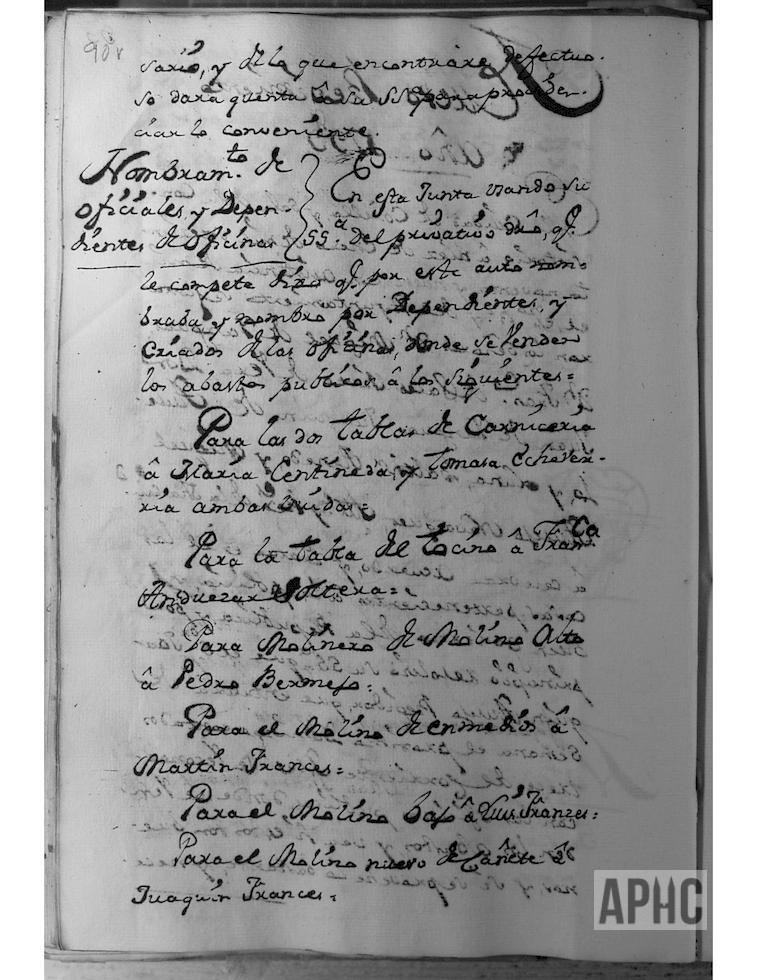 90v
sario, y de lo que encontrare defectuo-
so dara quenta â su SSª para providen-
ciar lo conveniente.
Nombram.to de
Oficiales y Depen-
dientes de Oficinas
En esta Junta usando su
SS.ª del privativo dro, q.
le compete dixo q. por este auto nom-
braba y nombro por Dependientes, y
Criados de las oficinas, donde se venden
los abastos publicos â los siguientes=
Para las dos tablas de Carniceria
â Maria Centineda, y tomasa Echever-
ria ambas viudas=
Para la tabla del tocino â Fran.ca
Anduezar Soltera=
Para Molinero de Molino Alto
â Pedro Bermejo=
Para el Molino de enmedio â
Martin Frances=
Para el Molino bajo â Luis Franzes=
Para el Molino nuevo de Cañete â
Juaquin Frances=
APHC